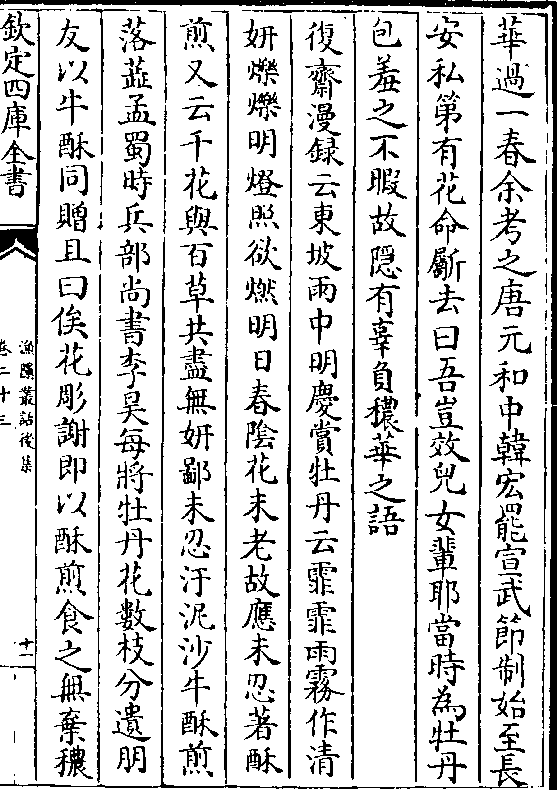 華過一春余考之唐元和中韓宏罷宣武節制始至長
安私第有花命斸去曰吾豈效兒女輩耶當時為牡丹
包羞之不暇故隠有辜負穠華之語
復齋漫録云東坡雨中明慶賞牡丹云霏霏雨霧作清
妍爍爍明燈照欲燃明日春陰花未老故應未忍著酥
煎又云千花與百草共盡無妍鄙未忍汙泥沙牛酥煎
落蘂孟蜀時兵部尚書李昊每將牡丹花數枝分遺朋
友以牛酥同贈且曰俟花彫謝即以酥煎食之無棄穠
欽定四庫全書
漁隱叢話後集
卷二十三
十一